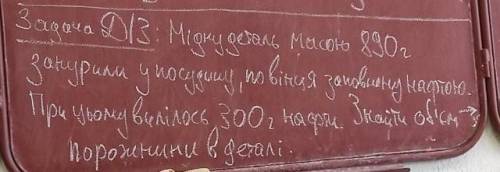 Задача Д/З: Мідну деталь масою 890г
занурили у посудину, по вінця заповнену нафтою.
При цьому вилілось 300г нафти. Знайти об'єм →
порожнини в деталі.